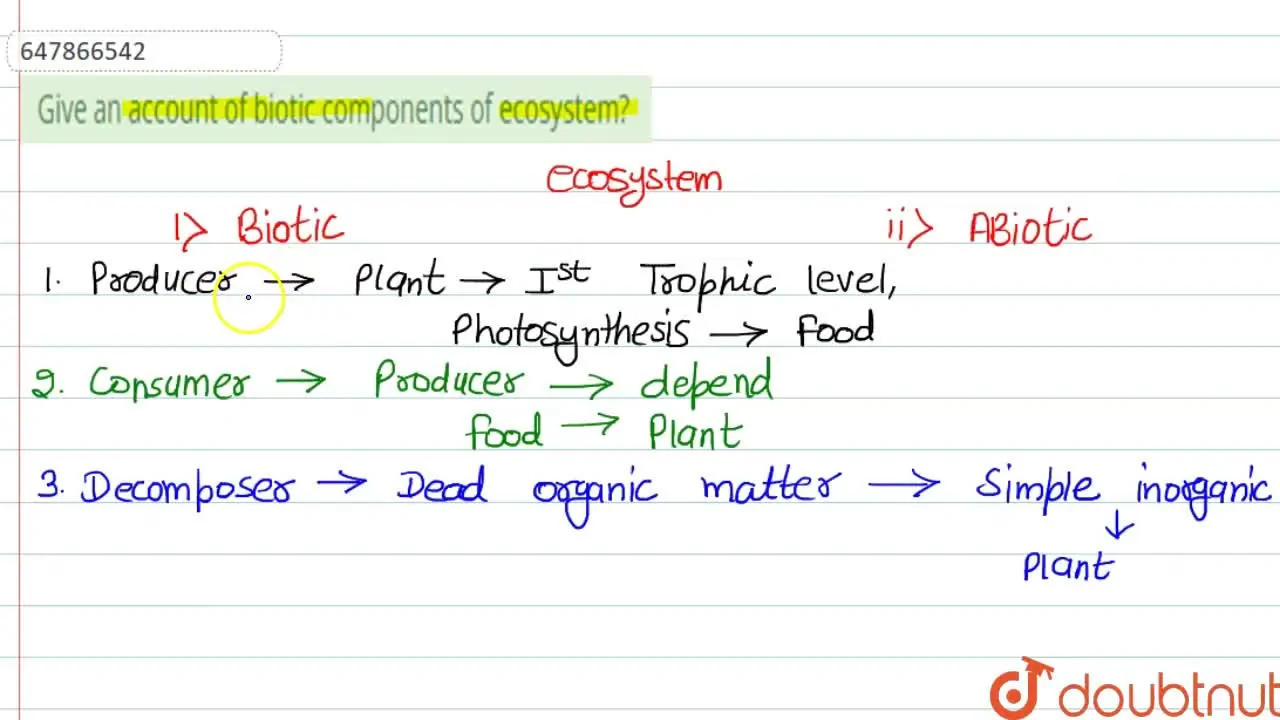 647866542
Give an account of biotic components of ecosystem?
ecosystem
1> Biotic ii> ABiotic
1. Producer → Plant → Ist Trophic level,
Photosynthesis → food
2. Consumer → Producer → depend
food → Plant
3. Decomposer → Dead organic matter → Simple inorganic
↓
Plant
doubtnut